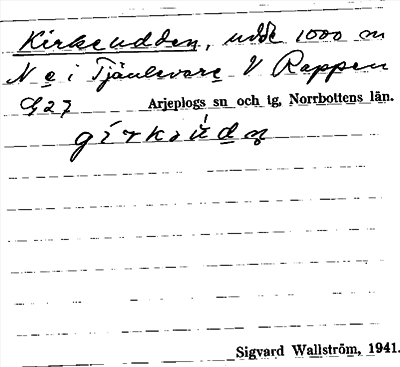 Kirkeudden, udde 1000 m
N e i Tjäulevare V Rappen
G27 Arjeplogs sn och tg, Norrbottens län.
gírkɜúdn̥
Sigvard Wallström, 1941.